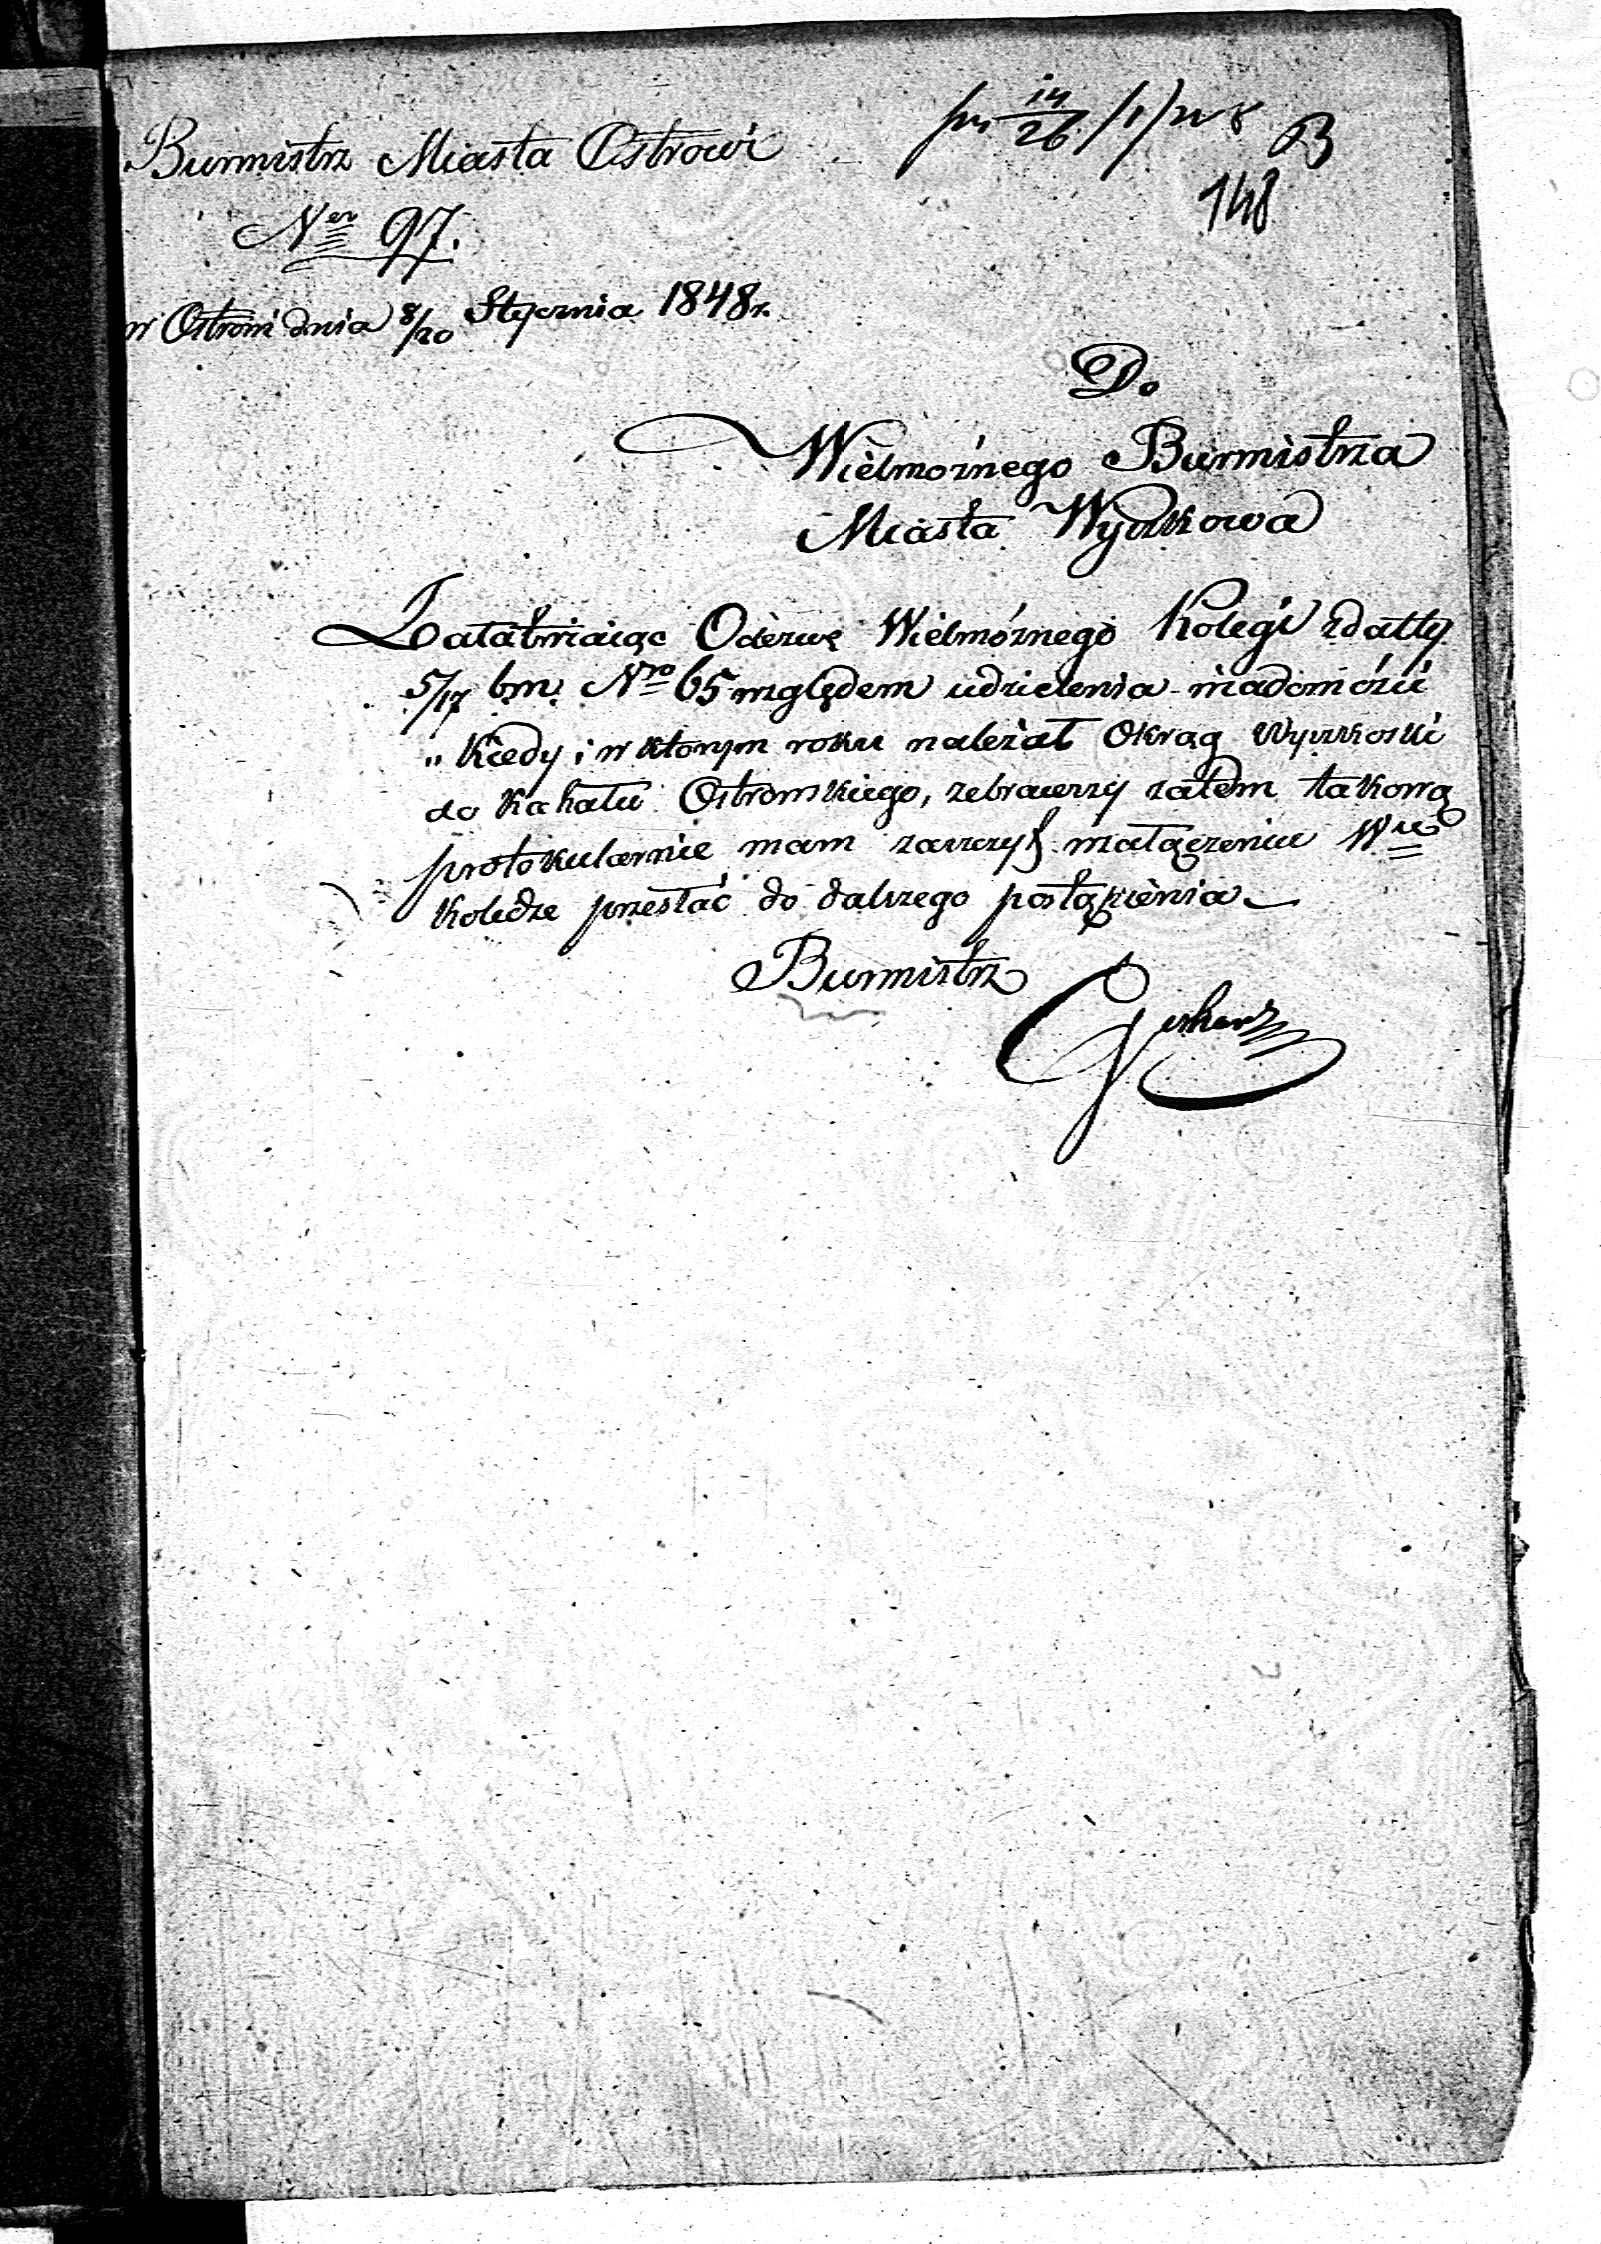 Burmistrz Miasta Ostrowi
14/26 /1
B
148
Ner 97.
w Ostrowi dnia 8/20 Stycznia 1848 r.
Do
Wielmożnego Burmistrza
Miasta Wyszkowa
Załatwiaiąc Odezwę Wielmożnego Kolegi z datty
5/17 bm. Nro 65 względem udzielenia wiadomości
„Kiedy i w którym roku należał Okrąg Wyszkoski
do Kahału Ostrowskiego, zebrawszy zatem takową
protokularnie mam zaszczyt w załączeniu Wu
Koledze przesłać do dalszego postąpienia
Burmistrz